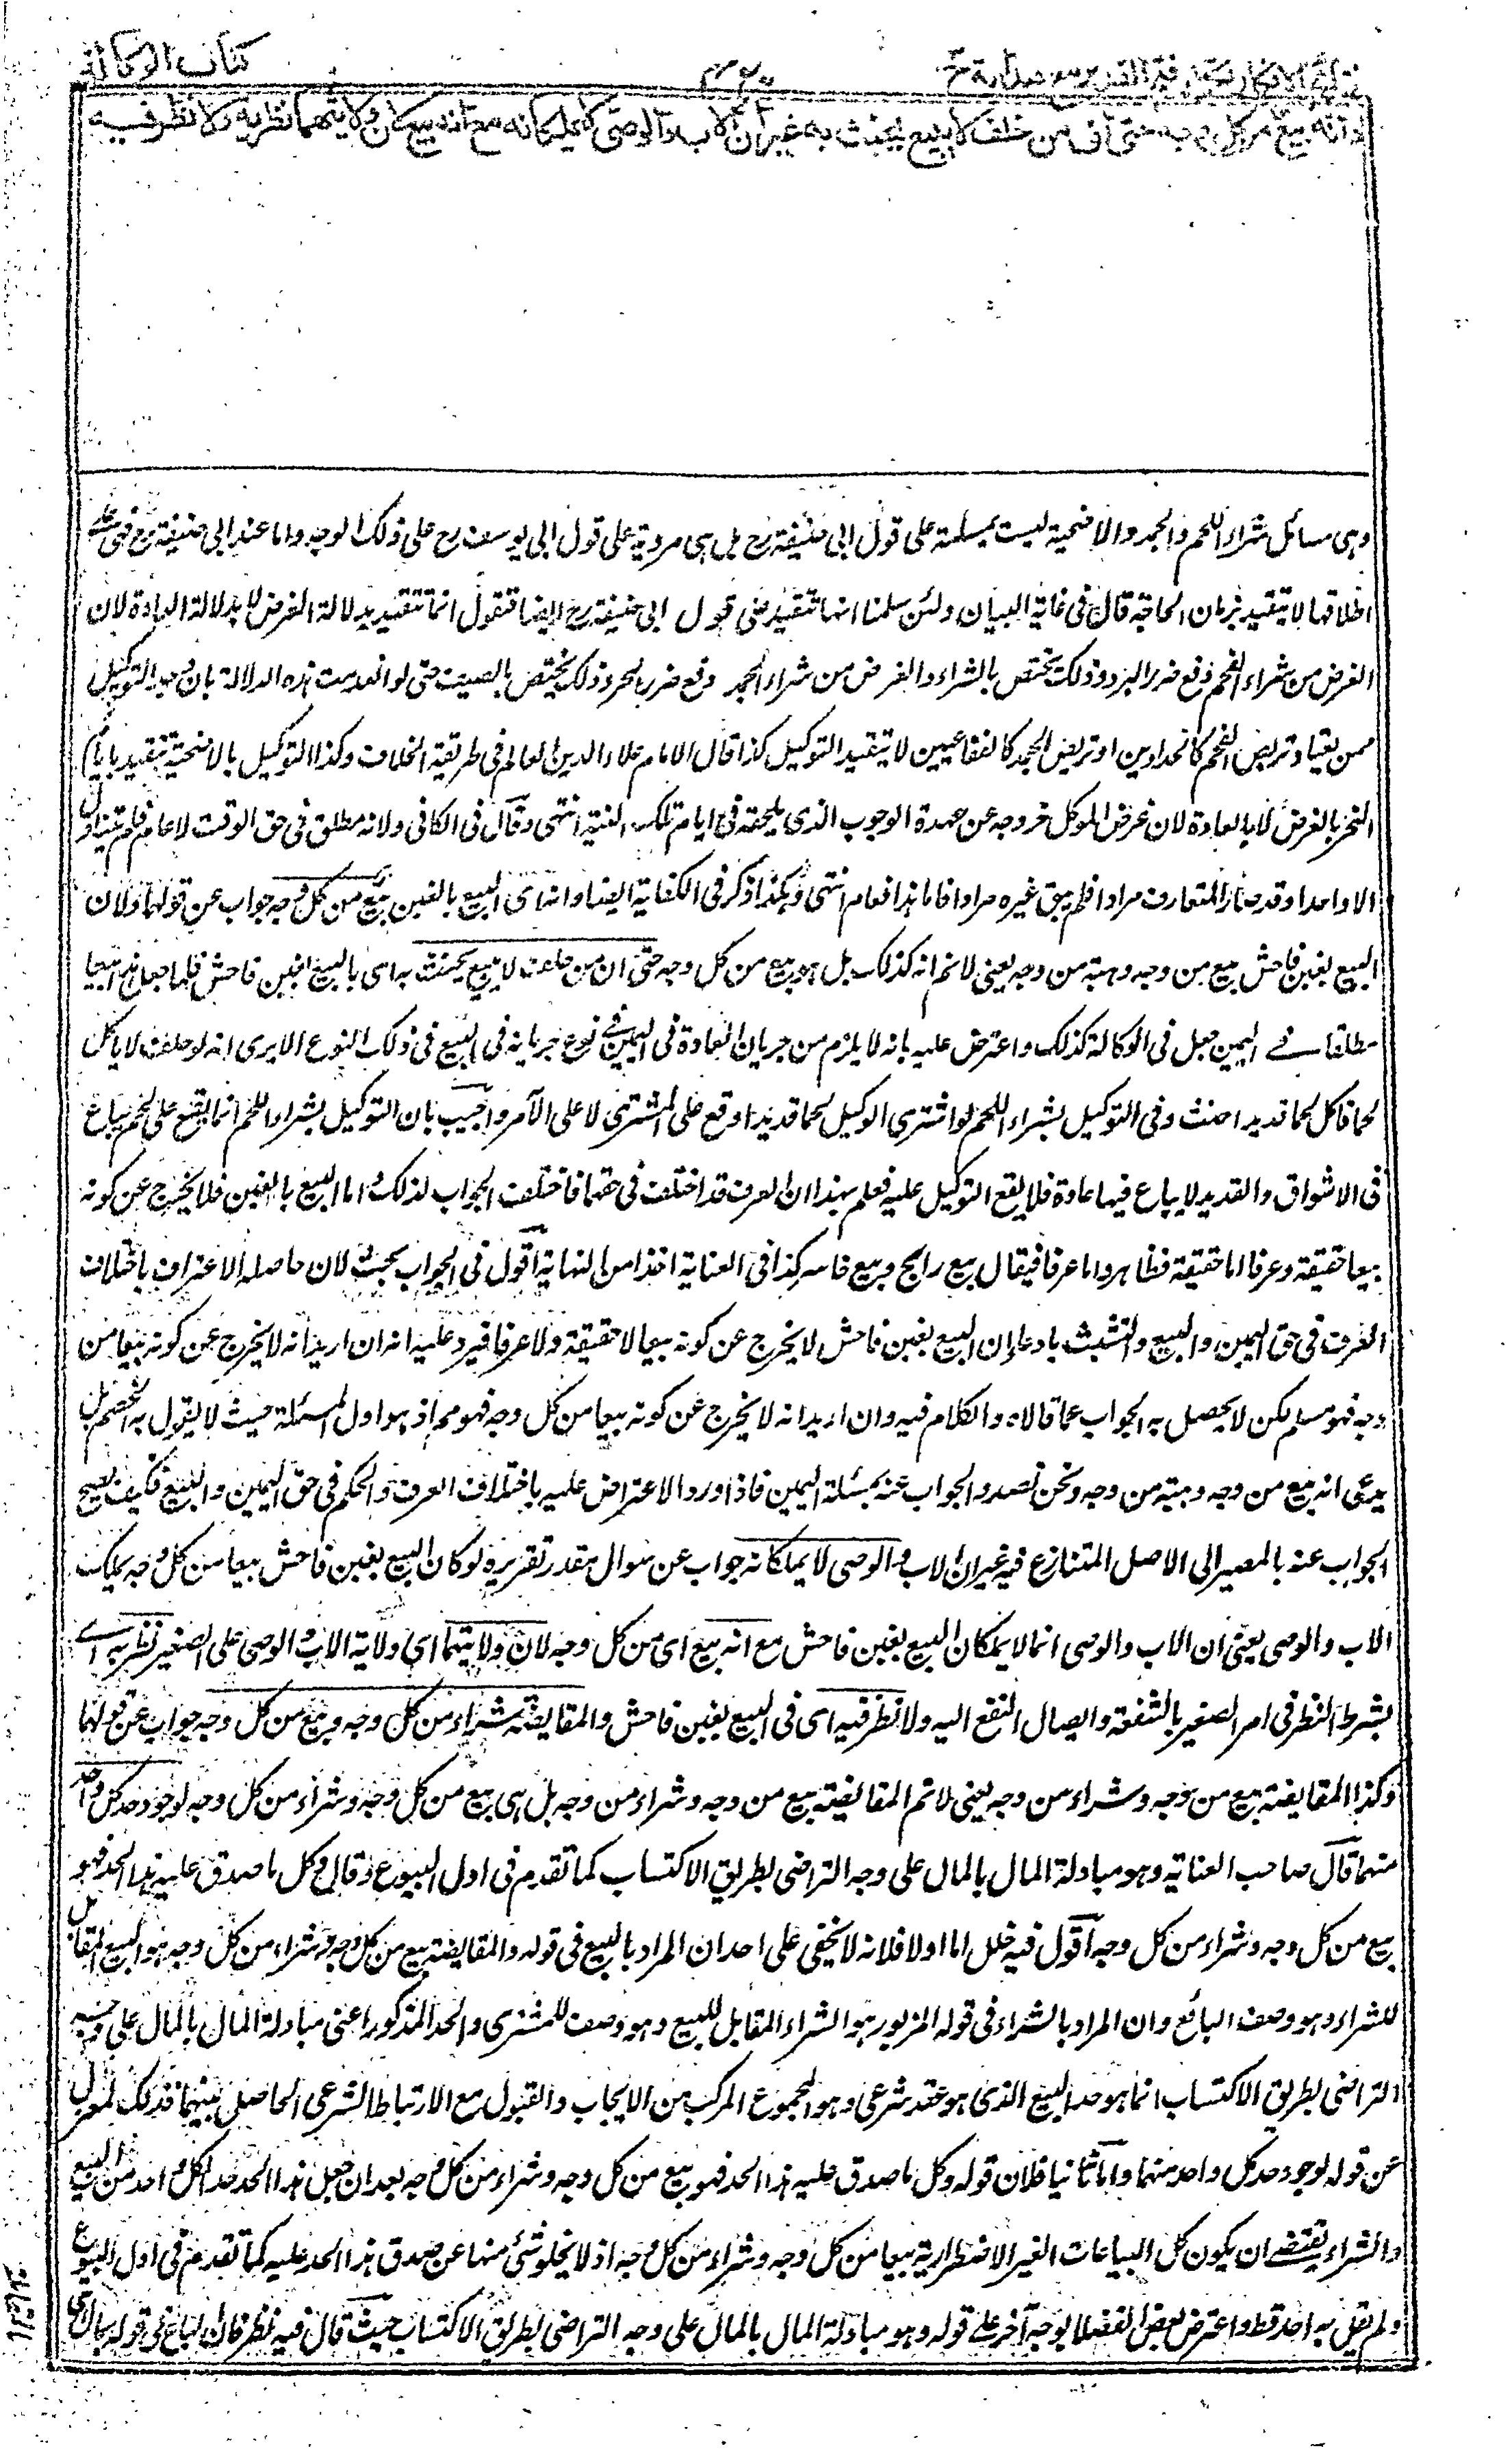 نتائج الافكار تكملة فتح القدير مع هداية ج ٣
٣٢٠
كتاب الوكالة
وانه بيع من كل وجه حتى ان من حلف لا يبيع يحنث به غير ان الاب والوصى لا يملكانه مع انه بيع لان ولايتهما نظرية ولا نظر فيه
وهى مسائل شراء اللحم والجمد والاضحية ليست بمسلمة على قول ابى حنيفة رح بل هى مروية على قول ابى يوسف رح على ذلك الوجه واما عند ابى حنيفة رح فهى على
اطلاقها لا يتقيد بزمان الحاجة قال فى غاية البيان ولئن سلمنا انها تتقيد على قول ابى حنيفة رح ايضا فنقول انما تتقيد بدلالة الغرض لا بدلالة العادة لان
الغرض من شراء الفحم دفع ضرر البرد وذلك يختص بالشتاء والغرض من شراء الجمد دفع ضرر الحر وذلك يختص بالصيف حتى لو انعدمت هذه الدلالة بان وجد التوكيل
ممن يعتاد تربص الفحم كالحدادين او تربص الجمد كالفقاعيين لا يتقيد التوكيل كذا قال الامام علاء الدين العالم فى طريقة الخلاف وكذا التوكيل بالاضحية يتقيد بايام
النحر بالغرض لا بالعادة لان غرض الموكل خروجه عن عهدة الوجوب الذى يلحقه فى ايام تلك السنة انتهى وقال فى الكافى ولانه مطلق فى حق الوقت لا عام فلم يتناول
الا واحدا وقد صار المتعارف مرادا فلم يبق غيره مرادا فاما هذا فعام انتهى وهكذا ذكر فى الكفاية ايضا وانه اى البيع بالغبن بيع من كل وجه جواب عن قولهما ولان
البيع بغبن فاحش بيع من وجه وهبة من وجه يعنى لا نم انه كذلك بل هو بيع من كل وجه حتى ان من حلف لا يبيع يحنث به اى بالبيع بغبن فاحش فلما جعل هذا بيعا
مطلقا فى اليمين جعل فى الوكالة كذلك واعترض عليه بانه لا يلزم من جريان العادة فى اليمين فى نوع جريانه فى البيع فى ذلك النوع الا يرى انه لو حلف لا ياكل
لحما فاكل لحما قديدا حنث وفى التوكيل بشراء اللحم لو اشترى الوكيل لحما قديدا وقع على المشترى لا على الآمر واجيب بان التوكيل بشراء اللحم انما يقع على لحم يباع
فى الاسواق والقديد لا يباع فيها عادة فلا يقع التوكيل عليه فعلم بهذا ان العرف قد اختلف فى حقهما فاختلف الجواب لذلك واما البيع بالغبن فلا يخرج عن كونه
بيعا حقيقة وعرفا اما حقيقة فظاهر واما عرفا فيقال بيع رابح وبيع خاسر كذا فى العناية اخذا من النهاية اقول فى الجواب بحث لان حاصله الاعتراف باختلاف
العرف فى حق اليمين والبيع والتشبث بادعاء ان البيع بغبن فاحش لا يخرج عن كونه بيعا لا حقيقة ولا عرفا فيرد عليه انه ان اريد انه لا يخرج عن كونه بيعا من
وجه فهو مسلم لكن لا يحصل به الجواب عما قالاه والكلام فيه وان اريد انه لا يخرج عن كونه بيعا من كل وجه فهو مم اذ هو اول المسئلة حيث لا يقول به الخصم بل
يدعى انه بيع من وجه وهبة من وجه ونحن نصدد الجواب عنه بمسئلة اليمين فاذا ورد الاعتراض عليه باختلاف العرف والحكم فى حق اليمين والبيع فكيف يصح
الجواب عنه بالمصير الى الاصل المتنازع فيه غير ان الاب والوصى لا يملكانه جواب عن سوال مقدر تقريره لو كان البيع بغبن فاحش بيعا من كل وجه يملكه
الاب والوصى يعنى ان الاب والوصى انما لا يملكان البيع بغبن فاحش مع انه بيع اى من كل وجه لان ولايتهما اى ولاية الاب والوصى على الصغير نظرية اى
بشرط النظر فى امر الصغير بالشفقة وايصال النفع اليه ولا نظر فيه اى فى البيع بغبن فاحش والمقايضة شراء من كل وجه وبيع من كل وجه جواب عن قولهما
وكذا المقايضة بيع من وجه وشراء من وجه يعنى لا نم المقايضة بيع من وجه وشراء من وجه بل هى بيع من كل وجه وشراء من كل وجه لوجود حد كل واحد
منهما قال صاحب العناية وهو مبادلة المال بالمال على وجه التراضى بطريق الاكتساب كما تقدم فى اول البيوع وقال وكل ما صدق عليه هذا الحد فهو
بيع من كل وجه وشراء من كل وجه اقول فيه خلل اما اولا فلانه لا يخفى على احد ان المراد بالبيع فى قوله والمقايضة بيع من كل وجه وشراء من كل وجه هو البيع المقابل
للشراء وهو وصف البائع وان المراد بالشراء فى قوله المزبور هو الشراء المقابل للبيع وهو وصف للمشترى والحد المذكور اعنى مبادلة المال بالمال على وجه
التراضى بطريق الاكتساب انما هو حد البيع الذى هو عقد شرعى وهو المجموع المركب من الايجاب والقبول مع الارتباط الشرعى الحاصل بينهما فذلك بمعزل
عن قوله لوجود حد كل واحد منهما واما ثانيا فلان قوله وكل ما صدق عليه هذا الحد فهو بيع من كل وجه وشراء من كل وجه بعد ان جعل هذا الحد حدا لكل واحد من البيع
والشراء يقتضى ان يكون كل البياعات الغير الاضطرارية بيعا من كل وجه وشراء من كل وجه اذ لا يخلو شئى منها عن صدق هذا الحد عليه كما تقدم فى اول البيوع
ولم يقل به احد قط واعترض بعض الفضلا بوجه آخر على قوله وهو مبادلة المال بالمال على وجه التراضى بطريق الاكتساب حيث قال فيه نظر فان